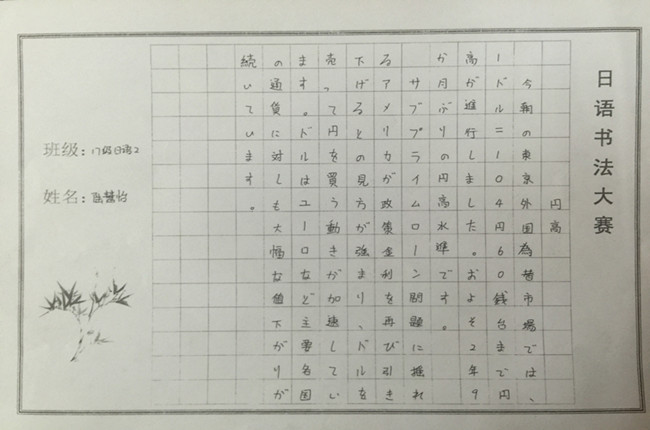 日语书法大赛
円高
今朝の東京外国為替市場では、
1ドル=104円60銭台まで円
高が進行しました。およそ2年9
か月ぶりの円高水準です。
サブプライムローン問題に揺れ
るアメリカが政策金利を再び引き
下げるとの見方が強まり、ドルを
売って円を買う動きが加速してい
ます。ドルはユーロなど主要各国
の通貨に対しても大幅な値下がりが
続いています。
班级：17级日语2
姓名：